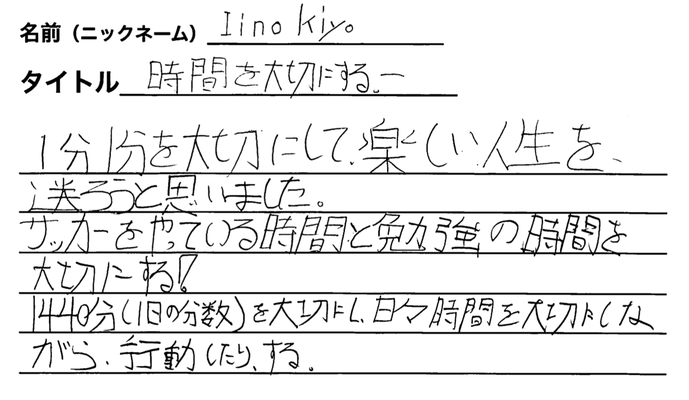 名前（ニックネーム） Iino Kiyo
タイトル 時間を大切にする。
1分1分を大切にして、楽しい人生を、
送ろうと思いました。
サッカーをやっている時間と勉強の時間を
大切にする!
1440分(1日の分数)を大切にし、日々時間を大切にしな
がら、行動したり、する。